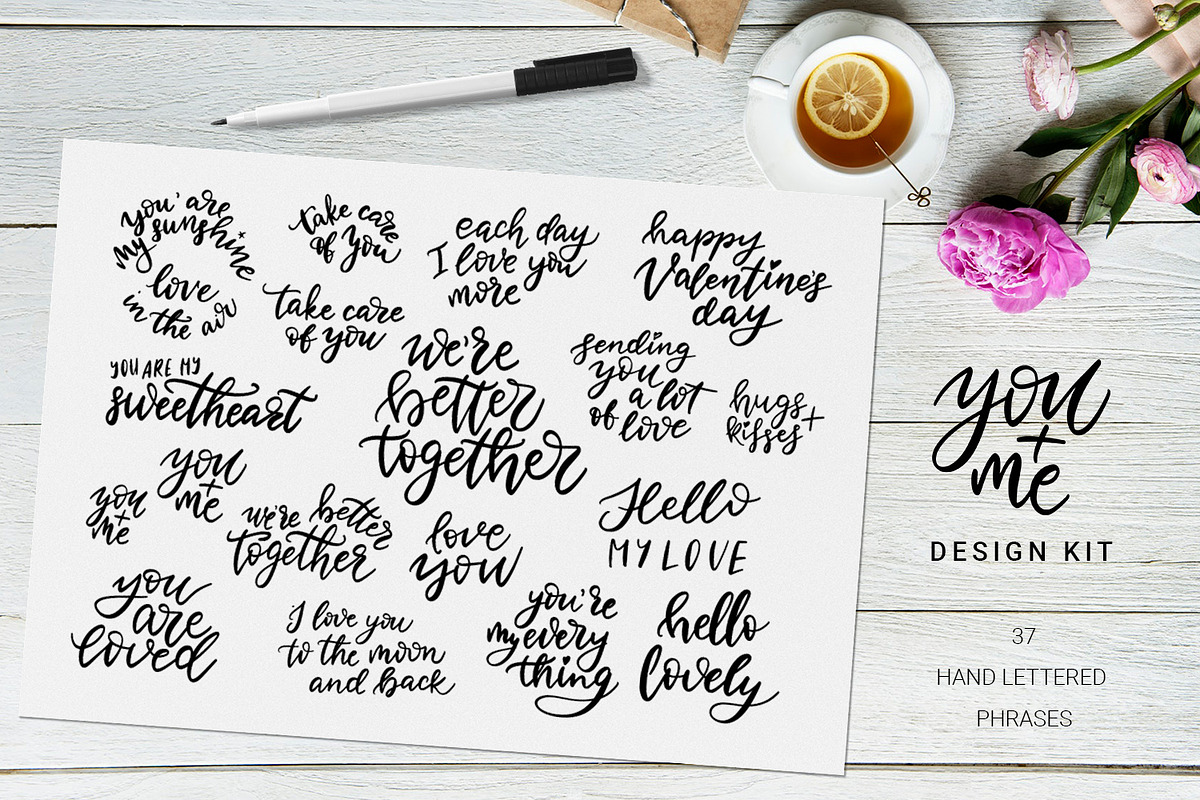 you'are
my sunshine
love
in the air
take care
of you
each day
I love you
more
happy
Valentine's
day
take care
of you
we're
better
together
sending
you
a lot
of love
hugs +
kisses
YOU ARE MY
sweetheart
you
+
me
you
+
me
we're better
together
love
you
Hello
MY LOVE
you
are
loved
I love you
to the moon
and back
you're
my every
thing
hello
lovely
you
+
me
DESIGN KIT
37
HAND LETTERED
PHRASES